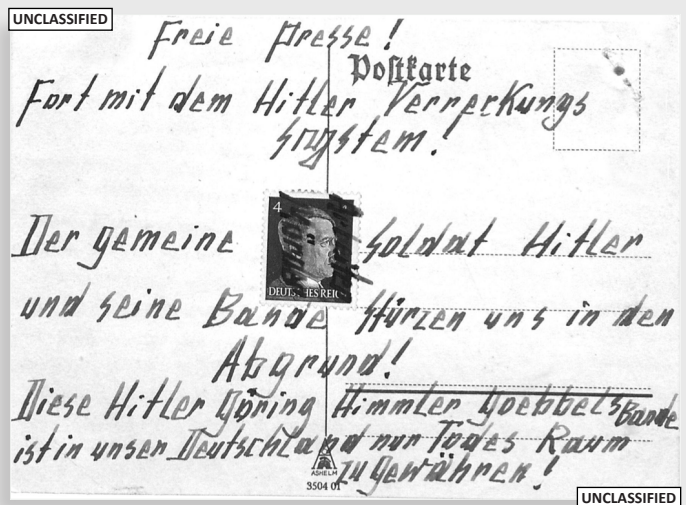 UNCLASSIFIED
Freie Presse!
Postkarte
Fort mit dem Hitler Verrerkungs
system!
4
Der gemeine Soldat Hitler
DEUTSCHES REICH
und seine Bande stürzen uns in den
Abgrund!
Diese Hitler Göring Himmler Goebbels Bande
ist in unser Deutschland nur Todes Raum
zu gewähren!
ASHELM
3504 01
UNCLASSIFIED